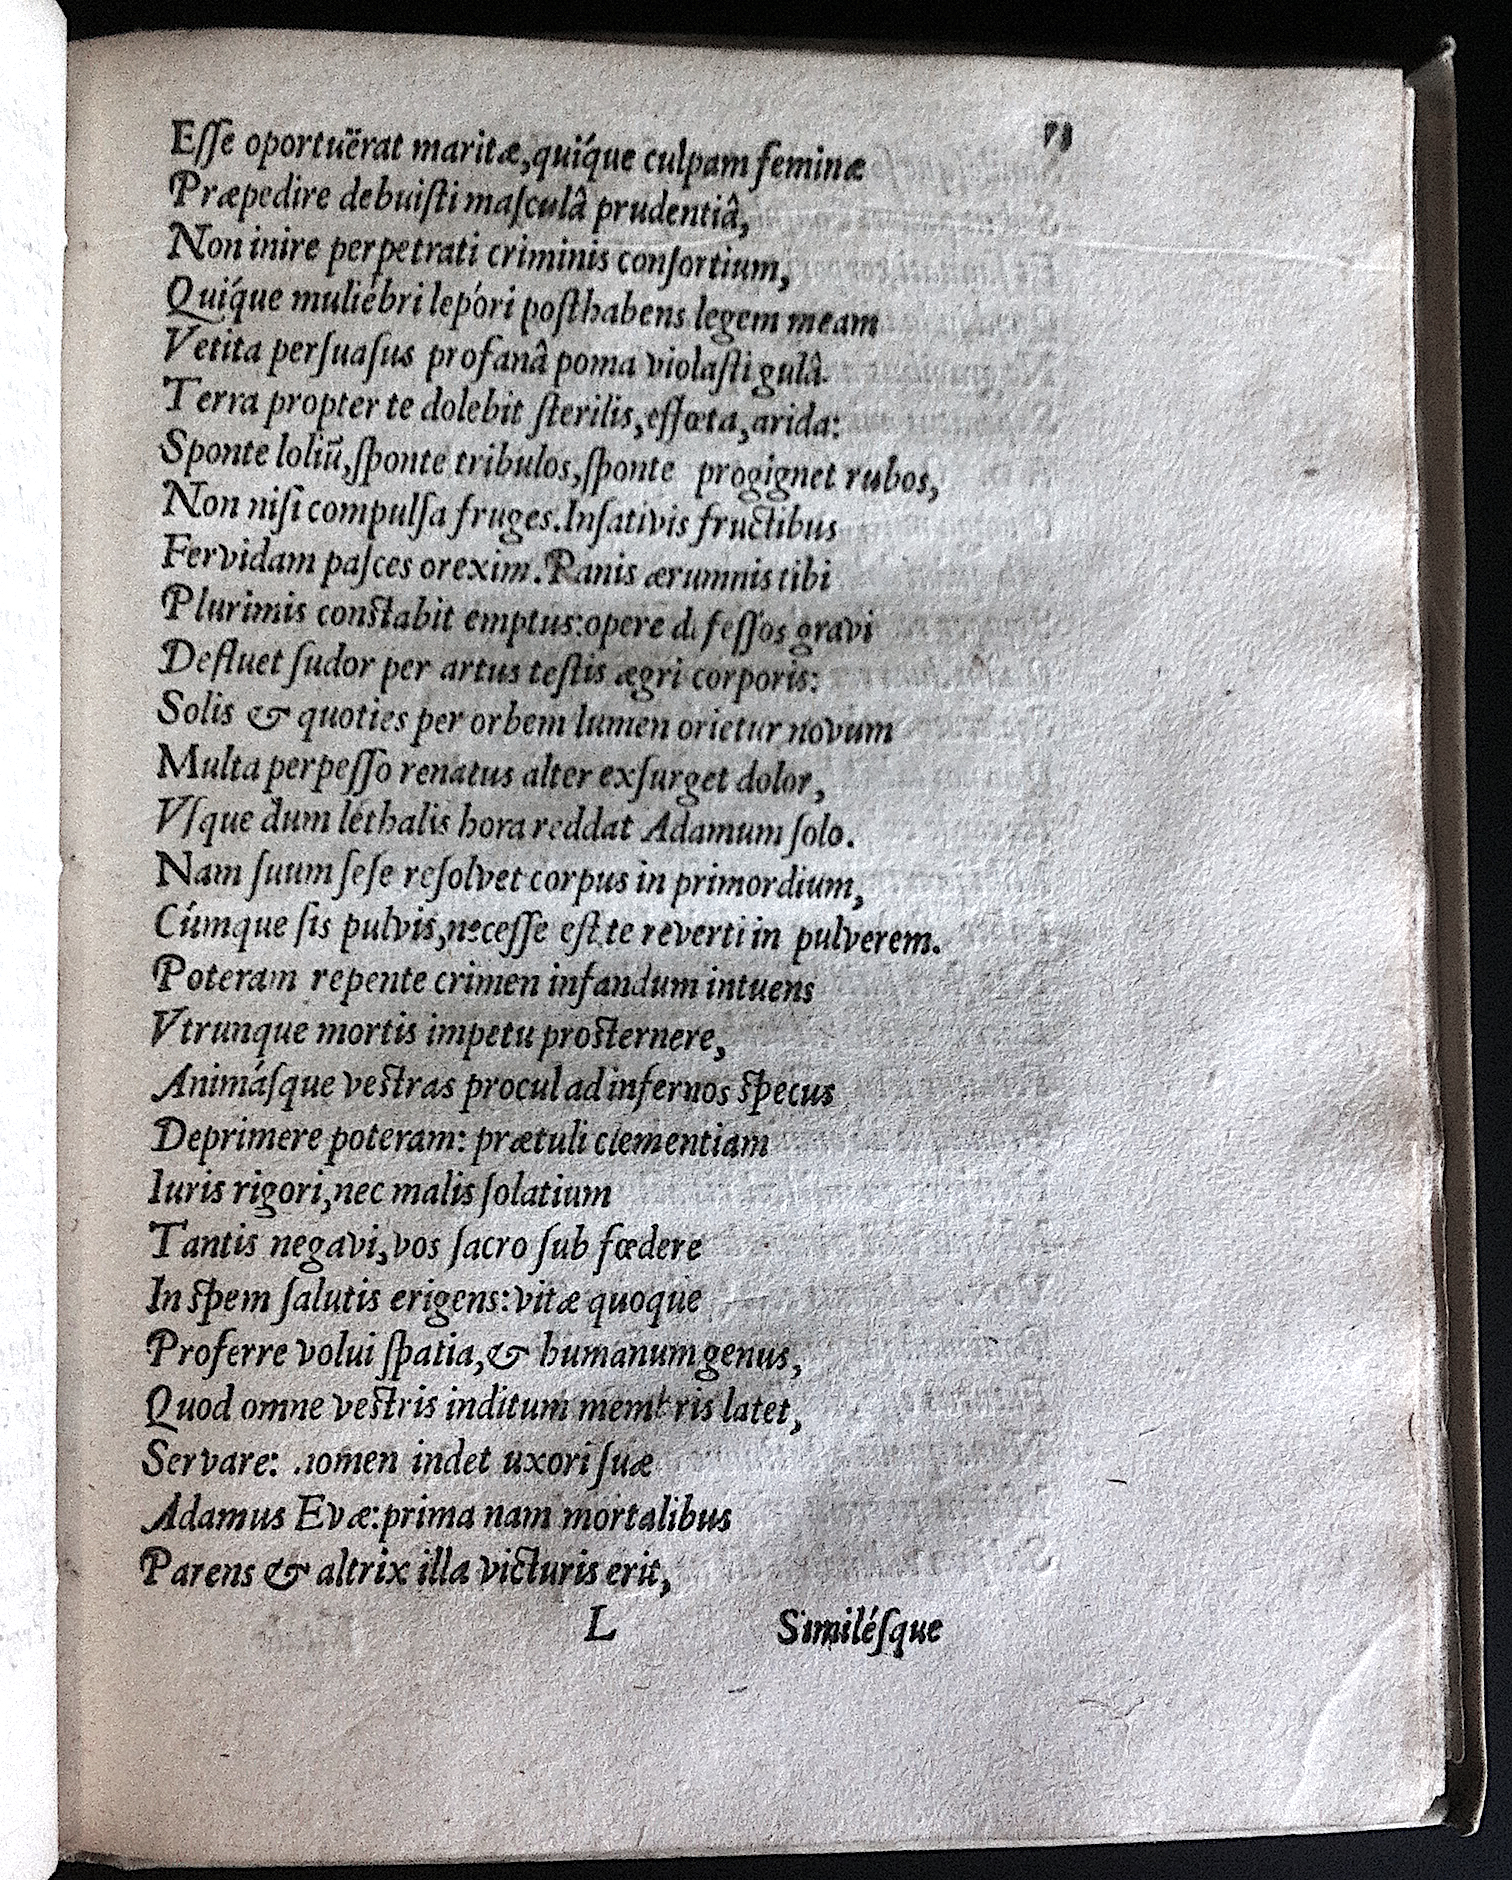 73
Eſſe oportuërat maritæ,quíque culpam feminæ
Præpedire debuiſti maſculâ prudentiâ,
Non inire perpetrati criminis conſortium,
Quíque muliébri lepóri poſthabens legem meam
Vetita perſuaſus profanâ poma violaſti gulâ.
Terra propter te dolebit ſterilis,effœta,arida:
Sponte loliū,ſponte tribulos,ſponte progignet rubos,
Non niſi compulſa fruges.Inſativis fructibus
Fervidam paſces orexim.Panis ærumnis tibi
Plurimis conſtabit emptus:opere defeſſos gravi
Defluet ſudor per artus teſtis ægri corporis:
Solis & quoties per orbem lumen orietur novum
Multa perpeſſo renatus alter exſurget dolor,
Vſque dum léthalis hora reddat Adamum ſolo.
Nam ſuum ſeſe reſolvet corpus in primordium,
Cúmque ſis pulvis,neceſſe eſt te reverti in pulverem.
Poteram repente crimen infandum intuens
Vtrunque mortis impetu proſternere,
Animáſque veſtras procul ad infernos ſpecus
Deprimere poteram: prætuli clementiam
Iuris rigori,nec malis ſolatium
Tantis negavi,vos ſacro ſub fœdere
In ſpem ſalutis erigens:vitæ quoque
Proferre volui ſpatia,& humanum genus,
Quod omne veſtris inditum membris latet,
Servare: nomen indet uxori ſuæ
Adamus Evæ:prima nam mortalibus
Parens & altrix illa victuris erit,
L Similéſque